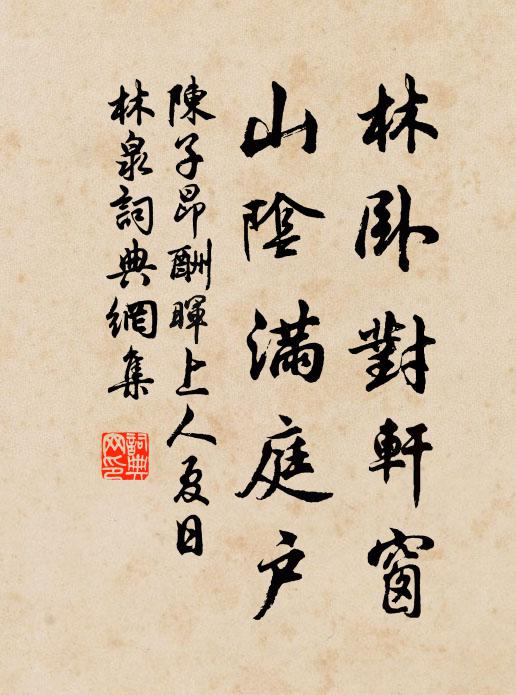 林臥對軒窗
山陰滿庭戶
陳子昂酬暉上人夏日
林泉詞典網集
詞典
网印